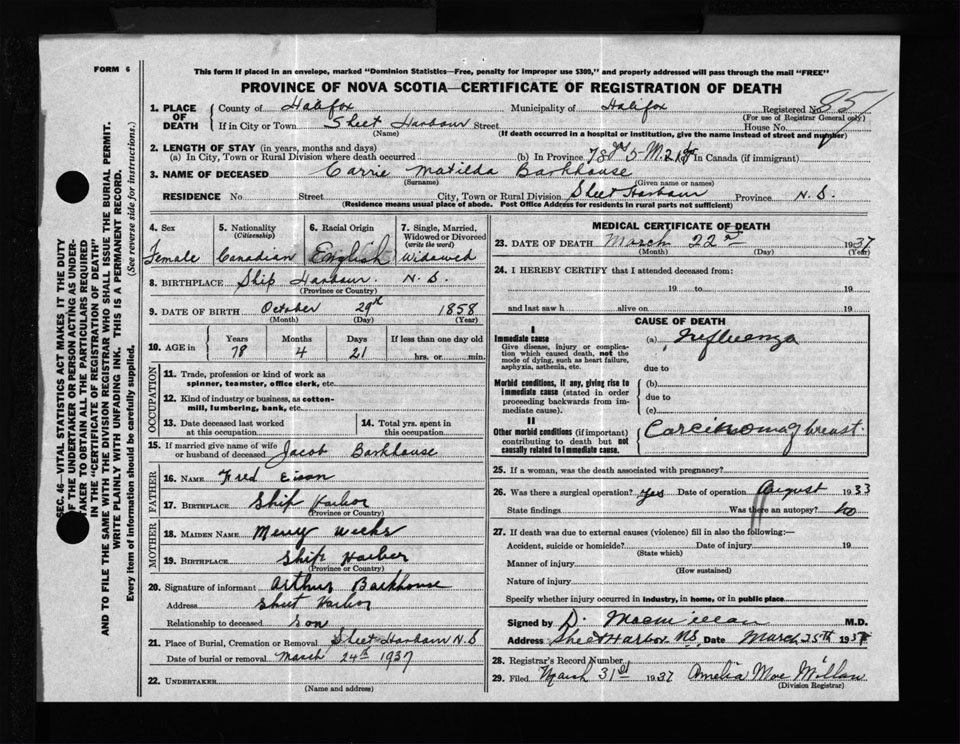 FORM 6
This form if placed in an envelope, marked "Dominion Statistics—Free, penalty for improper use $300," and properly addressed will pass through the mail "FREE"
PROVINCE OF NOVA SCOTIA—CERTIFICATE OF REGISTRATION OF DEATH
SEC. 46—VITAL STATISTICS ACT MAKES IT THE DUTY
OF THE UNDERTAKER OR PERSON ACTING AS UNDER-
TAKER TO OBTAIN ALL THE PARTICULARS REQUIRED
IN THE "CERTIFICATE OF REGISTRATION OF DEATH"
AND TO FILE THE SAME WITH THE DIVISION REGISTRAR WHO SHALL ISSUE THE BURIAL PERMIT.
WRITE PLAINLY WITH UNFADING INK. THIS IS A PERMANENT RECORD.
Every item of information should be carefully supplied. (See reverse side for instructions.)
1. PLACE OF DEATH County of Halifax Municipality of Halifax Registered No. 851
(For use of Registrar General only)
If in City or Town Sheet Harbour Street House No.
(Name) (If death occurred in a hospital or institution, give the name instead of street and number)
2. LENGTH OF STAY (in years, months and days)
(a) In City, Town or Rural Division where death occurred (b) In Province 78 yrs 5-M. 21 In Canada (if immigrant)
3. NAME OF DECEASED Carrie Matilda Barkhouse
(Surname) (Given name or names)
RESIDENCE No. Street City, Town or Rural Division Sheet Harbour Province N.S.
(Residence means usual place of abode. Post Office Address for residents in rural parts not sufficient)
4. Sex Female
5. Nationality (Citizenship) Canadian
6. Racial Origin English
7. Single, Married, Widowed or Divorced (write the word) Widowed
8. BIRTHPLACE Ship Harbour N.S.
(Province or Country)
9. DATE OF BIRTH October 29th 1858
(Month) (Day) (Year)
10. AGE in Years 78 Months 4 Days 21 If less than one day old hrs. or min.
OCCUPATION
11. Trade, profession or kind of work as
spinner, teamster, office clerk, etc.
12. Kind of industry or business, as cotton-
mill, lumbering, bank, etc.
13. Date deceased last worked at this occupation.
14. Total yrs. spent in this occupation.
15. If married give name of wife or husband of deceased Jacob Barkhouse
FATHER
16. NAME Fred
17. BIRTHPLACE Ship Harbor
(Province or Country)
MOTHER
18. MAIDEN NAME Weeks
19. BIRTHPLACE Ship Harber
(Province or Country)
20. Signature of informant Arthur Barkhouse
Address Sheet Harbor
Relationship to deceased Son
21. Place of Burial, Cremation or Removal Sheet Harbour N.S
Date of burial or removal March 24th 1937
22. UNDERTAKER
(Name and address)
MEDICAL CERTIFICATE OF DEATH
23. DATE OF DEATH March 22nd 1937
(Month) (Day) (Year)
24. I HEREBY CERTIFY that I attended deceased from:
19 to 19
and last saw h alive on 19
CAUSE OF DEATH
I
Immediate cause
Give disease, injury or complica-
tion which caused death, not the
mode of dying, such as heart failure,
asphyxia, asthenia, etc.
(a) Influenza
due to
Morbid conditions, if any, giving rise to
immediate cause (stated in order
proceeding backwards from im-
mediate cause).
(b)
due to
(c)
II
Other morbid conditions (if important)
contributing to death but not
causally related to immediate cause.
Carcinoma of breast.
25. If a woman, was the death associated with pregnancy?
26. Was there a surgical operation? yes Date of operation August 1933
State findings Was there an autopsy? no
27. If death was due to external causes (violence) fill in also the following:—
Accident, suicide or homicide? Date of injury 19
(State which)
Manner of injury
(How sustained)
Nature of injury
Specify whether injury occurred in industry, in home, or in public place
Signed by D. Macmillan M.D.
Address Sheet Harbor NS, Date March 25th 1937
28. Registrar's Record Number
29. Filed March 31st 1937 Amelia
(Division Registrar)